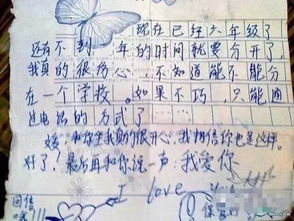 现在已经六年级了
还有不到一年的时间就要分开了,
我真的很伤心,不知道能不能分
在一个学校。如果不巧,只能通
过电话的方式了……
和你坐我真的很开心,我相信你也是这样。
好了,最后再和你说一声:我爱你
I love
回信